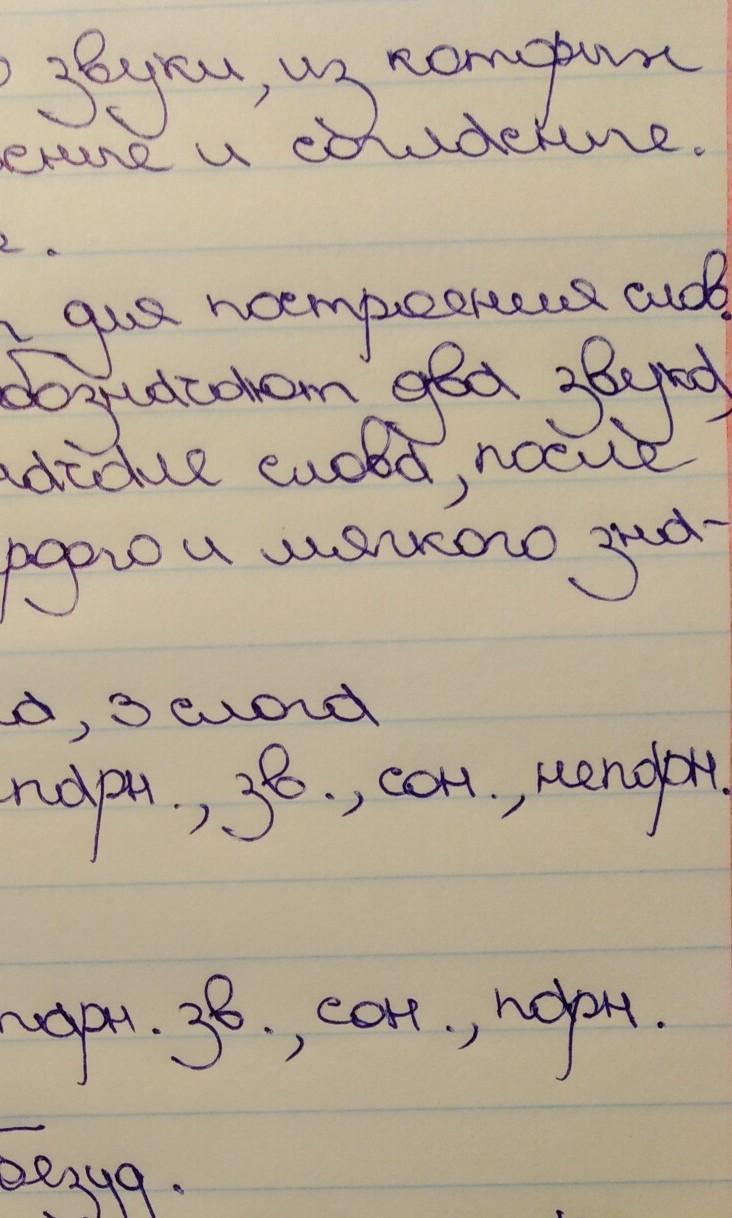 звуки, из которых
сные и согласные.
для построения слов.
обозначают два звука,
начале слова, после
рдого и мягкого зна-
а, 3 слога
парн., зв., сон., непарн.
парн. зв., сон., парн.
безуд.